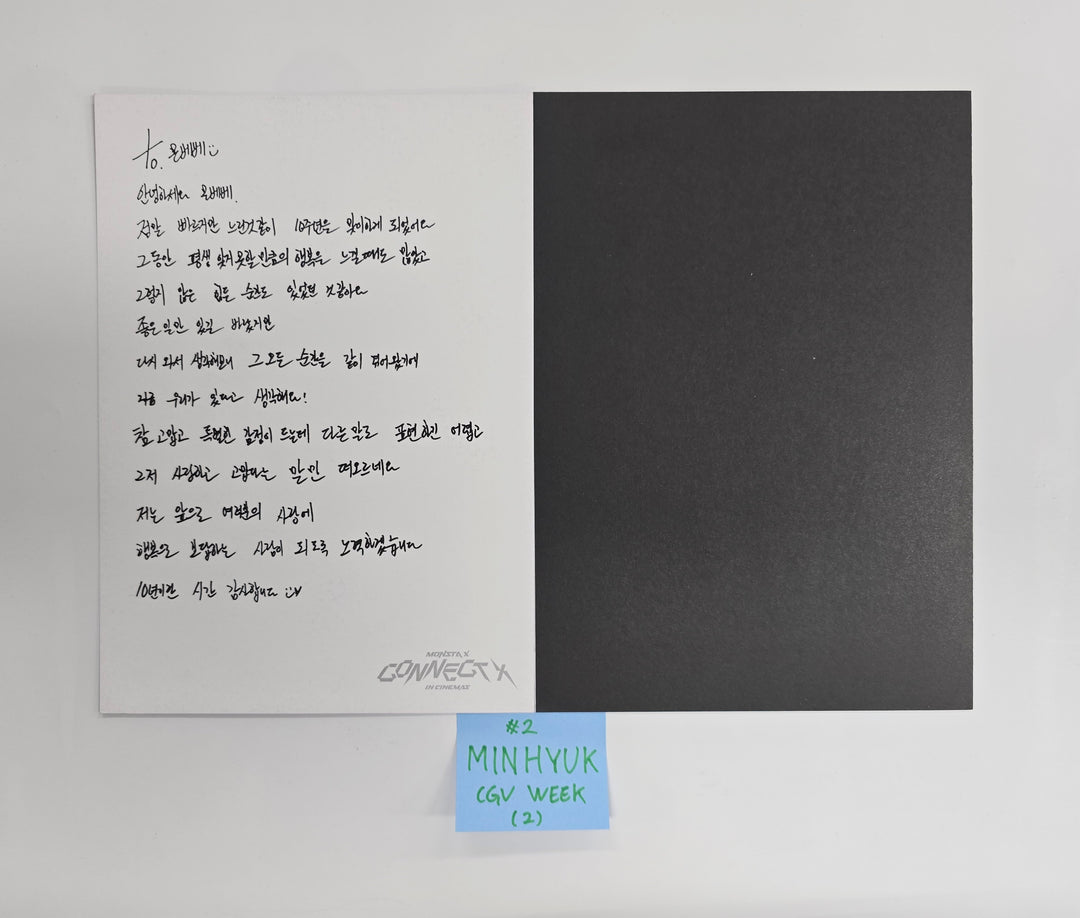 to. 몬베베 :)
안녕하세요 몬베베.
정말 빠르지만 느린것같이 10주년을 맞이하게 되었어요
그동안 평생 잊지못할만큼의 행복을 느낄때도 많았고
그렇지 않은 힘든 순간도 있었던 것 같아요
좋은일만 있길 바랐지만
다시 와서 생각해보니 그 모든 순간을 같이 뛰어왔기에
지금 우리가 있다고 생각해요!
참 고맙고 특별한 감정이 드는데 다른말로 표현하긴 어렵고
그저 사랑하고 고맙다는 말만 떠오르네요
저는 앞으로 여러분의 사랑에
행복으로 보답하는 사람이 되도록 노력하겠습니다
10년이란 시간 감사합니다 :)
MONSTA X
CONNECT X
IN CINEMAS
#2
MINHYUK
CGV WEEK
(2)